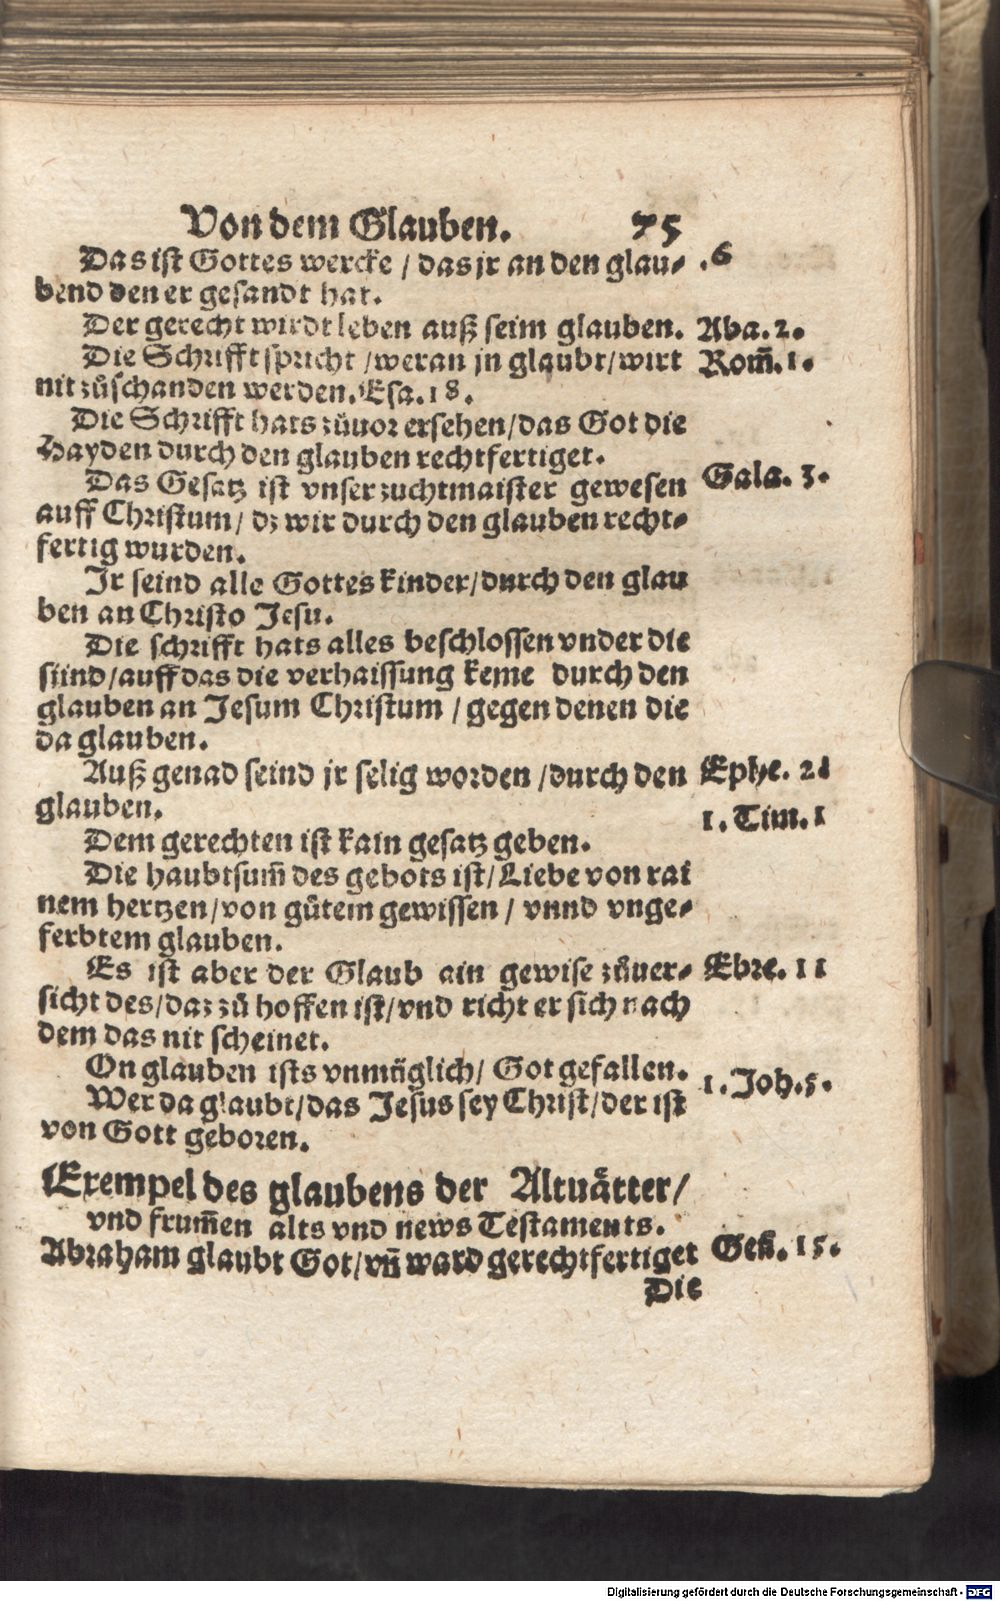 Von dem Glauben. 75
Das ist Gottes wercke / das jr an den glau⸗ .6
bend den er gesandt hat.
Der gerecht wirdt leben auß seim glauben. Aba. 2.
Die Schrifft spricht / weran jn glaubt / wirt Rom̃. 1.
nit zůschanden werden. Esa. 18.
Die Schrifft hats zůuor ersehen / das Got die
Hayden durch den glauben rechtfertiget.
Das Gesatz ist vnser zuchtmaister gewesen Gala. 3.
auff Christum / dz wir durch den glauben recht⸗
fertig wurden.
Jr seind alle Gottes kinder / durch den glau
ben an Christo Jesu.
Die schrifft hats alles beschlossen vnder die
sünd / auff das die verhaissung keme durch den
glauben an Jesum Christum / gegen denen die
da glauben.
Auß genad seind jr selig worden / durch den Ephe. 2
glauben.
1. Tim. 1
Dem gerechten ist kain gesatz geben.
Die haubtsum̃ des gebots ist / Liebe von rai
nem hertzen / von gůtem gewissen / vnnd vnge⸗
ferbtem glauben.
Es ist aber der Glaub ain gewise zůuer⸗ Ebre. 11
sicht des / daz zů hoffen ist / vnd richt er sich nach
dem das nit scheinet.
On glauben ists vnmüglich / Got gefallen.
1. Joh. 5.
Wer da glaubt / das Jesus sey Christ / der ist
von Gott geboren.
Exempel des glaubens der Altuätter /
vnd frum̃en alts vnd news Testaments.
Abraham glaubt Got / vñ ward gerechtfertiget Geñ. 15.
Die
Digitalisierung gefördert durch die Deutsche Forschungsgemeinschaft - DFG